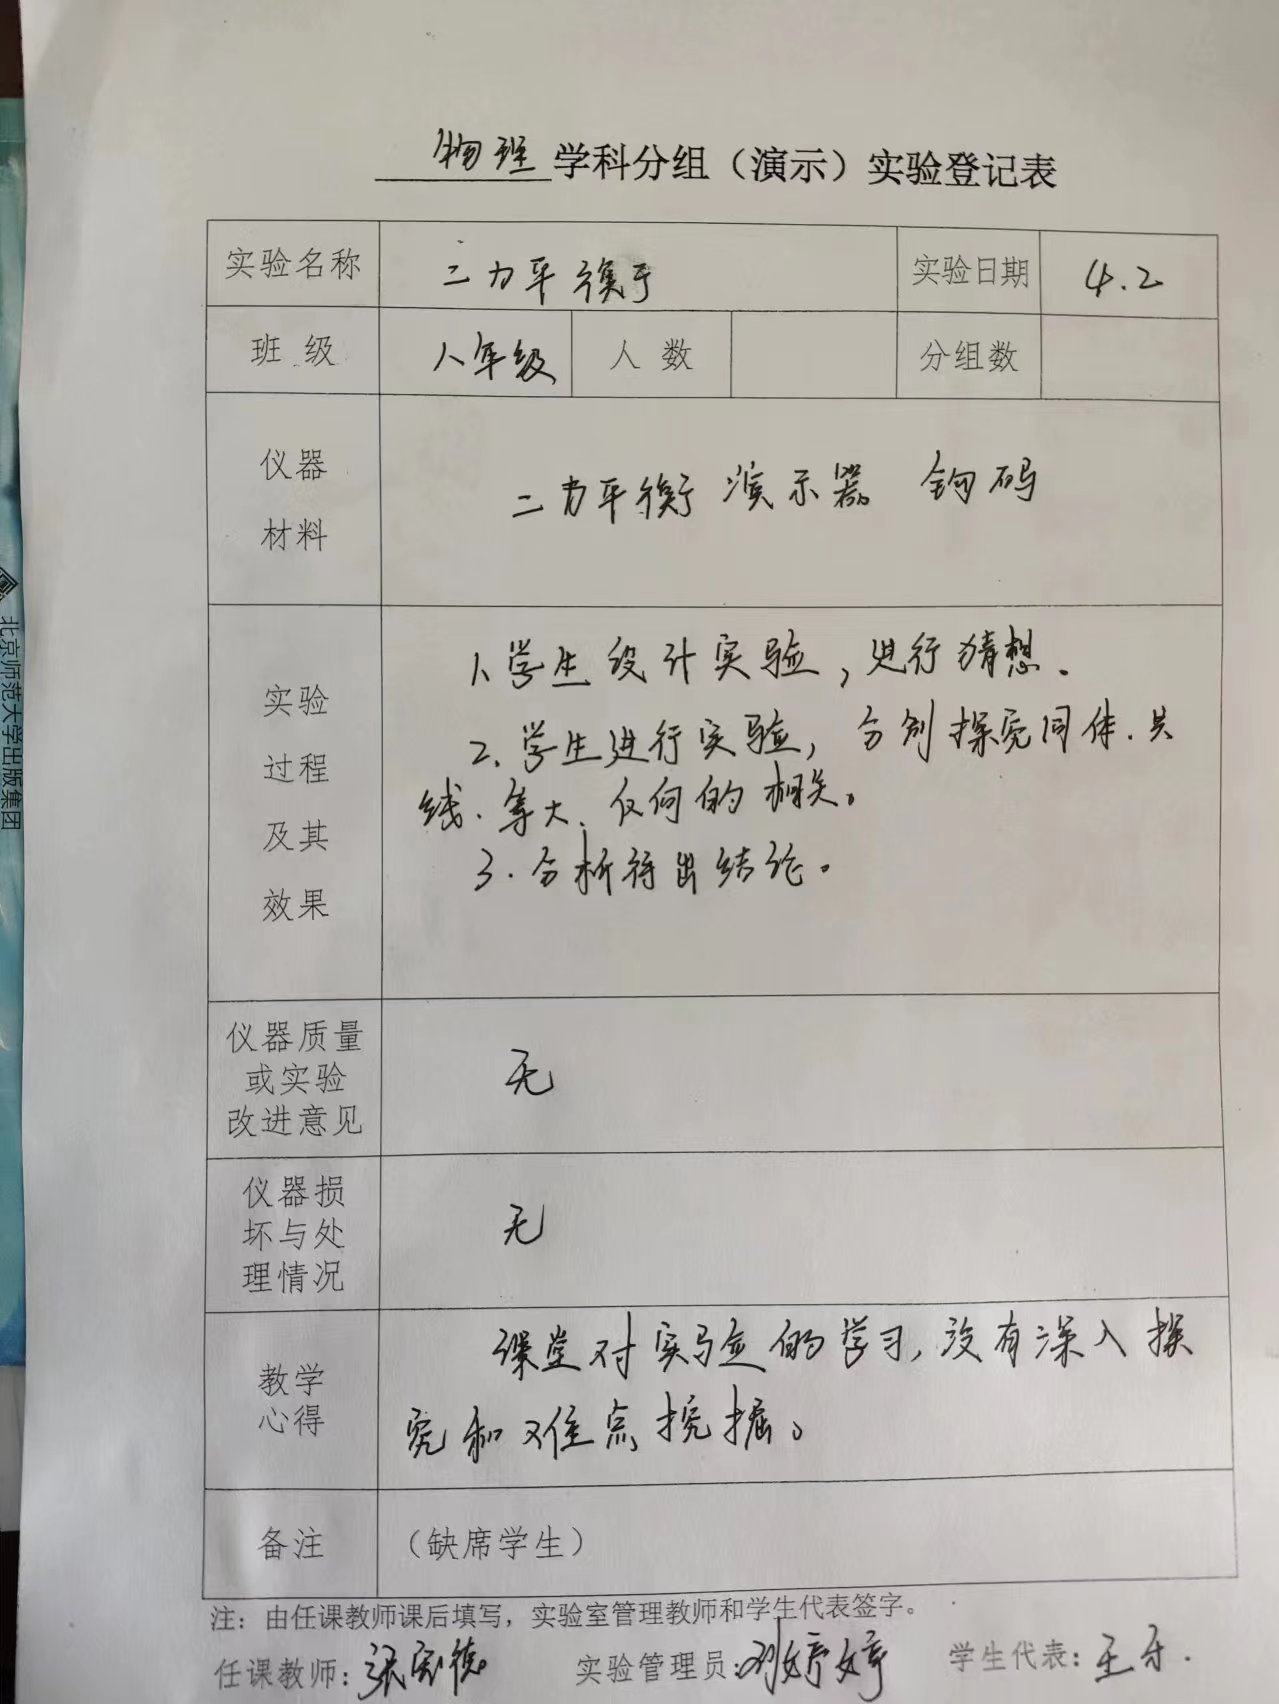 物理 学科分组（演示）实验登记表
实验名称 二力平衡 实验日期 4.2
班 级 八年级 人 数 分组数
仪器
材料
二力平衡演示器 钩码
实验
过程
及其
效果
1、学生设计实验，进行猜想.
2、学生进行实验，分别探究同体、共
线、等大、仅何的相关。
3.分析得出结论。
仪器质量
或实验
改进意见
无
仪器损
坏与处
理情况
无
教学
心得
课堂对实验的学习，没有深入探
究和难点挖掘。
备注 （缺席学生）
注：由任课教师课后填写，实验室管理教师和学生代表签字。
任课教师: 实验管理员: 刘婷婷 学生代表:
北京师范大学出版集团